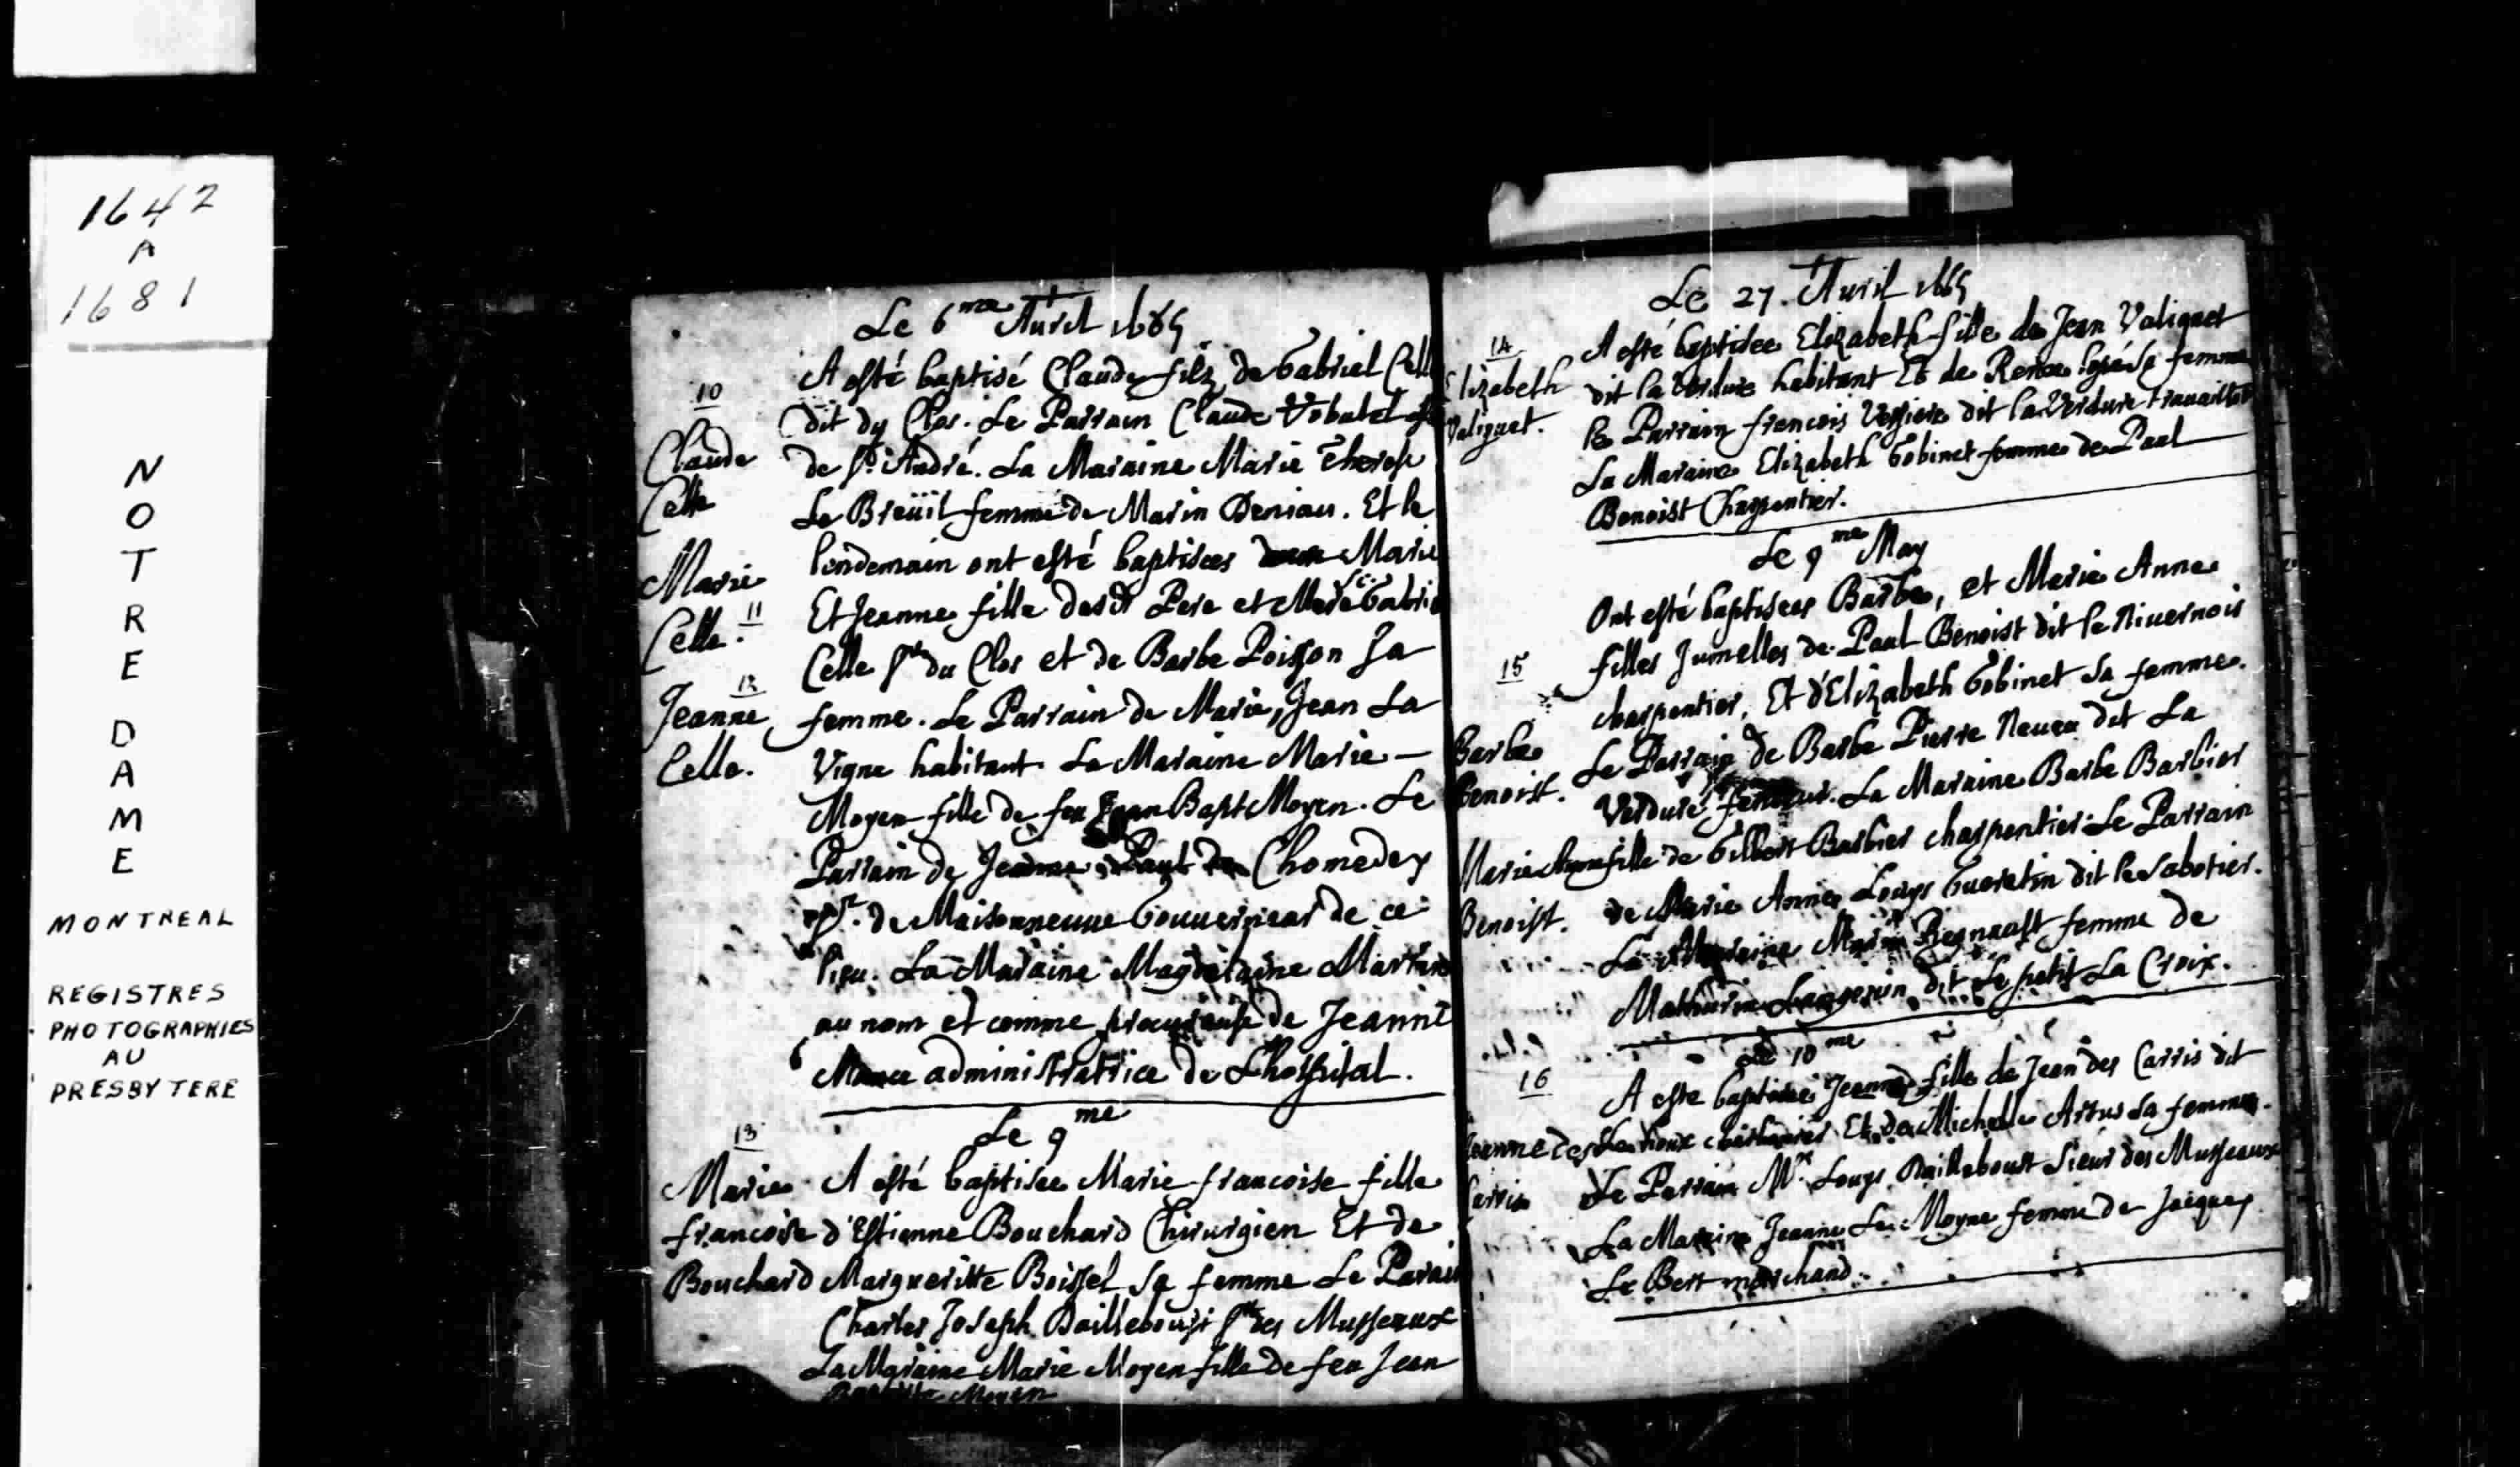 1642
A
1681
NOTRE
DAME
MONTREAL
REGISTRES
PHOTOGRAPHIES
AU
PRESBYTERE
Le 6me Auril 1665
10
Claude
Celle
A esté baptisé Claude filz de Gabriel Cell
dit du Clos. Le Parrain Claude Robutel
de St. André. La Maraine Marie Therese
Le Breüil femme de Marin Deniau. Et le
Marie
Celle. 11
lendemain ont esté baptisees Marie
Et Jeanne fille desdt Pere et Mere Gabrie
Celle Sr du Clos et de Barbe Poisson Sa
12
Jeanne
Celle.
femme. Le Parrain de Marie, Jean La
Vigne habitant La Maraine Marie —
Moyen fille de feu Jean Bapt Moyen. Le
Parrain de Jeanne Paul de Chomedey
Sr. de Maisonneuue Gouuerneur de ce
lieu. La Maraine Magdelaine
au nom et comme procureuse de Jeanne
Mance administratrice de Lhospital.
Le 9me
13
Marie
francoise
Bouchard
A esté baptisee Marie francoise fille
d'Estienne Bouchard Chirurgien Et de
Margueritte Boissel sa femme Le Parain
Charles Joseph Dailleboust Sr des Musseaux
La Maraine Marie Moyen fille de feu Jean
Baptiste Moyen
Le 27. Auril 1665
14
Elizabeth
Valiquet.
A esté baptisee Elizabeth fille de Jean Valiquet
dit la Verdure habitant Et de Renee lopé Sa femme
Le Parrain francois dit la Verdure trauaillant
La Maraine Elizabeth Gobinet femme de Paul
Benoist Charpentier.
Le 9me May
Ont esté baptisees Barbe, et Marie Anne
15
filles Jumelles de Paul Benoist dit le Niuernois
charpentier, Et d'Elizabeth Gobinet Sa femme.
Barbe
Benoist.
Le Parrain de Barbe Pierre Neueu dit La
Verdure La Maraine Barbe Barbier
Marie Anne
Benoist.
fille de Gilbert Barbier charpentier. Le Parrain
de Marie Anne Louys Gueretin dit le Sabotier.
La Maraine femme de
Mathurin Langeuin dit Le petit La Croix.
Le 10me
16
Jeanne des
Carris
A esté baptisee Jeanne fille de Jean des Carris dit
Le houx Et de Michelle Artus Sa femme.
Le Parrain Mr. Louys Dailleboust Sieur des Musseaux
La Maraine Jeanne Le Moyne femme de Jacques
Le Ber marchand.